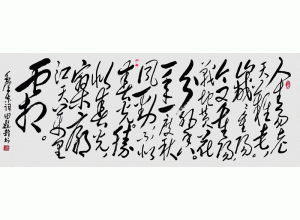 人生易老
天难老岁
岁重阳
今又重阳
战地黄花
分外香
一年一度秋
风劲不似
春光胜
似春光
寥廓
江天万里
霜。
毛泽东词